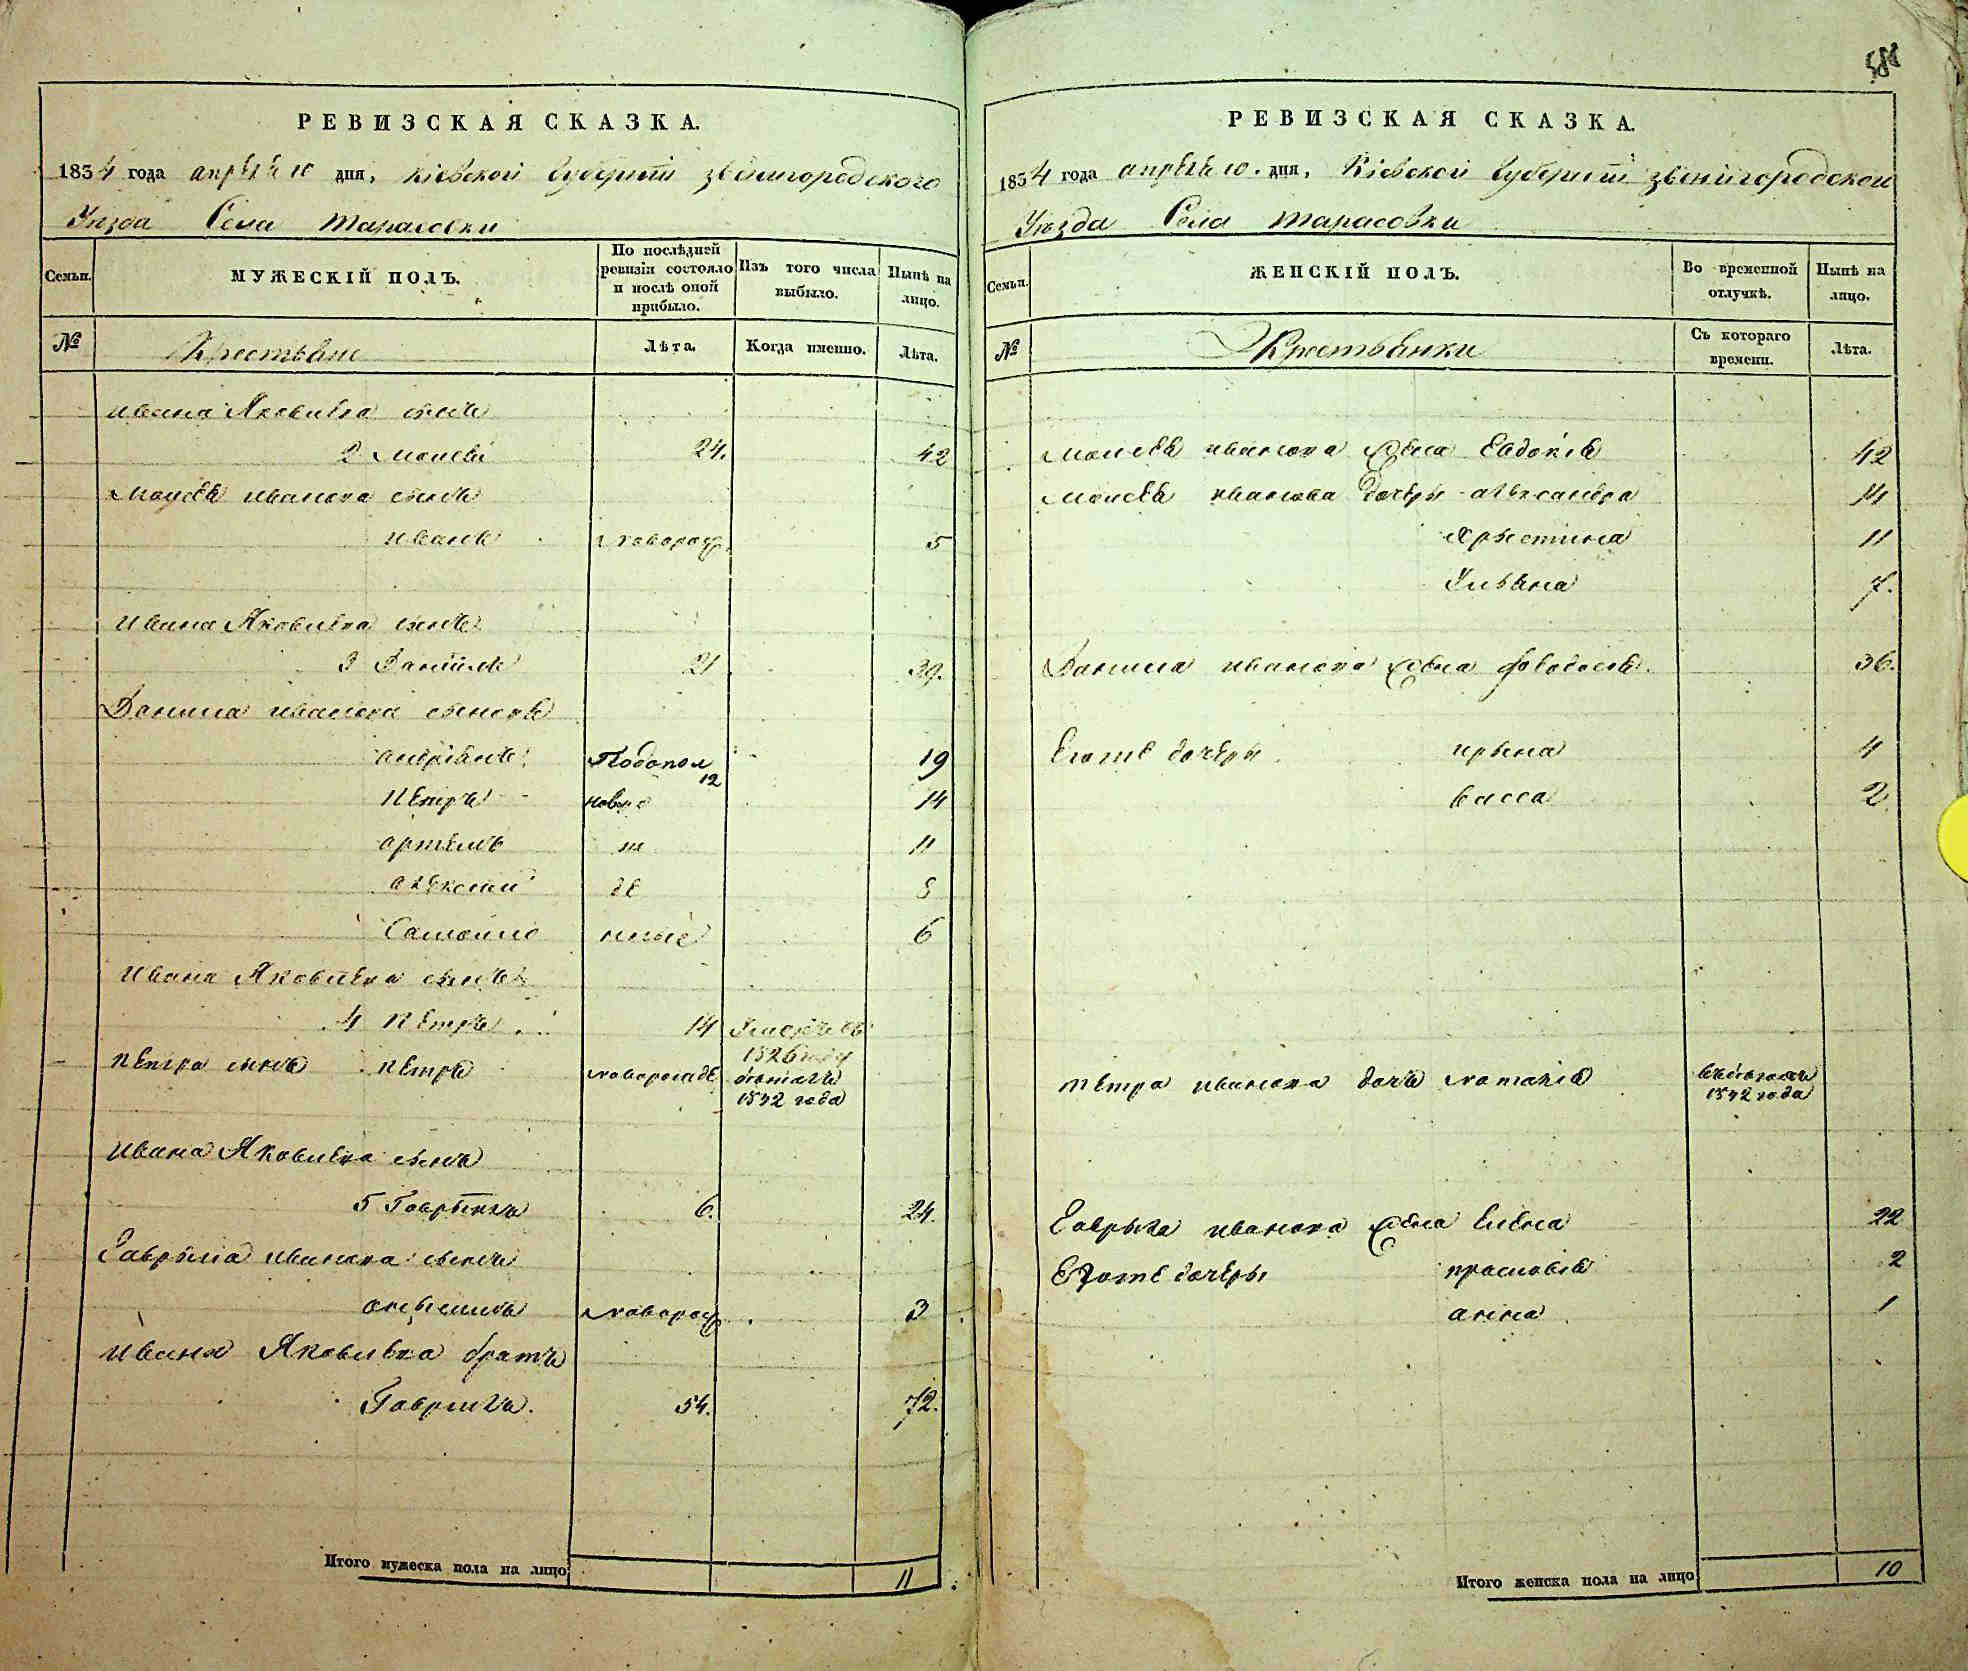 РЕВИЗСКАЯ СКАЗКА.
1854 года апреля 10 дня, Кіевской Губерніи Звенигородского
Уезда Села Тарасовки
Семьи.
МУЖЕСКІЙ ПОЛЪ.
По послѣдней ревизіи состояло и послѣ оной прибыло.
Изъ того числа выбыло.
Нынѣ на лицо.
№
Крестьяне
Лѣта.
Когда именно.
Лѣта.
Ивана Яковлева сынъ
2 Моисей 24. 42
Моисея Иванова сынъ
Иванъ новорож. 5
Ивана Яковлева сынъ
3 Данiилъ 21 39.
Данила Иванова сыновя
андріянъ 19
12
Петръ ново 14
артемъ ж 11
алексей де 8
Самойло нные 6
Ивана Яковлева сынъ
4 Петръ 14
Петра сынъ Петръ новорожде
1842 года
Ивана Яковлева сынъ
5 Гаврыилъ 6. 24.
Гаврыла Иванова сынъ
новорож. 3
Ивана Яковлева братъ
Гаврилъ. 54. 72.
Итого мужеска пола на лицо 11
РЕВИЗСКАЯ СКАЗКА.
1854 года апреля 10. дня, Кіевской Губерніи Звенигородской
Уезда Села Тарасовки
Семьи.
ЖЕНСКІЙ ПОЛЪ.
Во временной отлучкѣ.
Нынѣ на лицо.
№
Крестьянки
Съ котораго времени.
Лѣта.
Моисея Иванова жена Евдокія 42
Моисея Иванова дочери александра 14
Хрыстина 11
Ульяна 7.
Данила Иванова жена Феодосія. 36.
Егоже дочери ирына 4
васса 2
Петра Иванова дочъ Наталія
1842 года
Гаврыла Иванова жена Елена 22
Егоже дочеры прасковія 2
анна 1
Итого женска пола на лицо 10